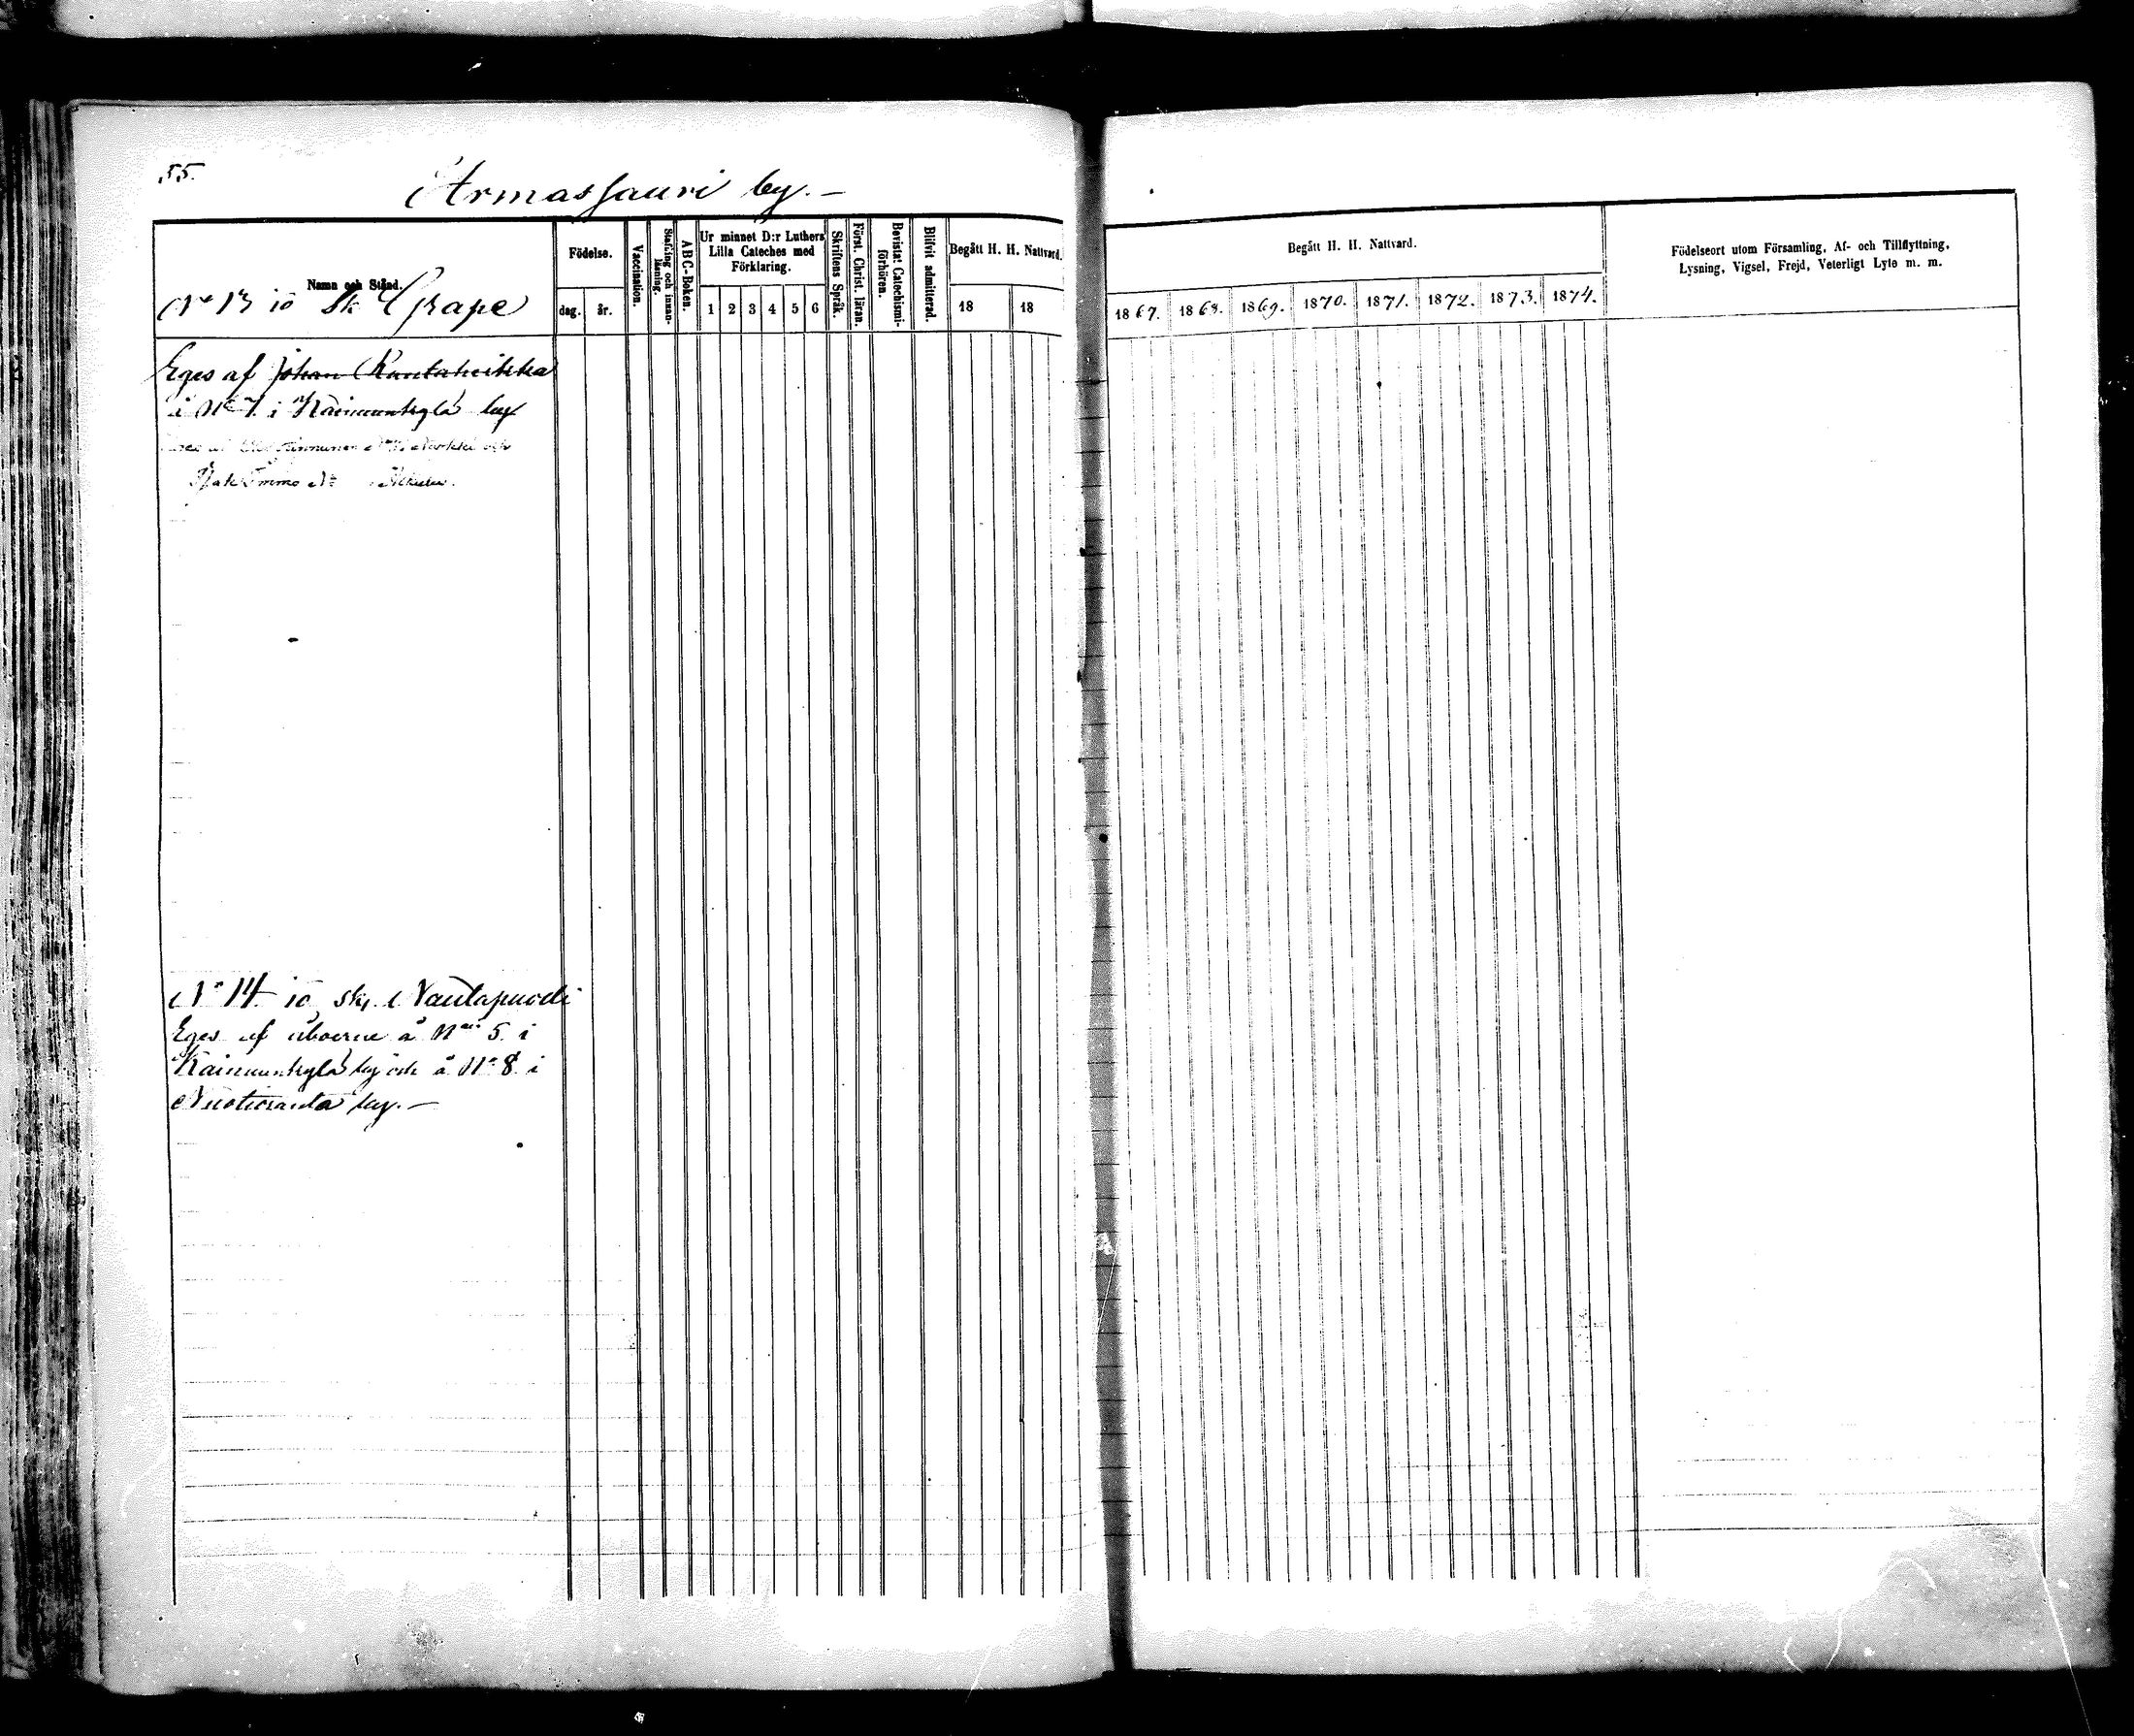 55.
Armassaari by. —
Namn och Stånd.
No 13 io Sk Grape
Födelse.
dag.
år.
Vaccination.
Stafning och innanläsning.
ABC-Boken.
Ur minnet D:r Luthers
Lilla Cateches med
Förklaring.
1 2 3 4 5 6
Skriftens Språk.
Först. Christ. läran.
Bevistat Catechismi-
förhören.
Blifvit admitterad.
Begått H. H. Nattvard.
18 18
Begått H. H. Nattvard.
1867. 1868. 1869. 1870. 1871. 1872. 1873. 1874.
Födelseort utom Församling, Af- och Tillflyttning,
Lysning, Vigsel, Frejd, Veterligt Lyte m. m.
Eges af Johan Rantaheikka
å No 7. i Kainuunkylä by
No 14 io sk. Nautapuodi
Eges af åboerne å No 5. i
Kainuunkylä by och å No 8. i
Nuotioranta by. —